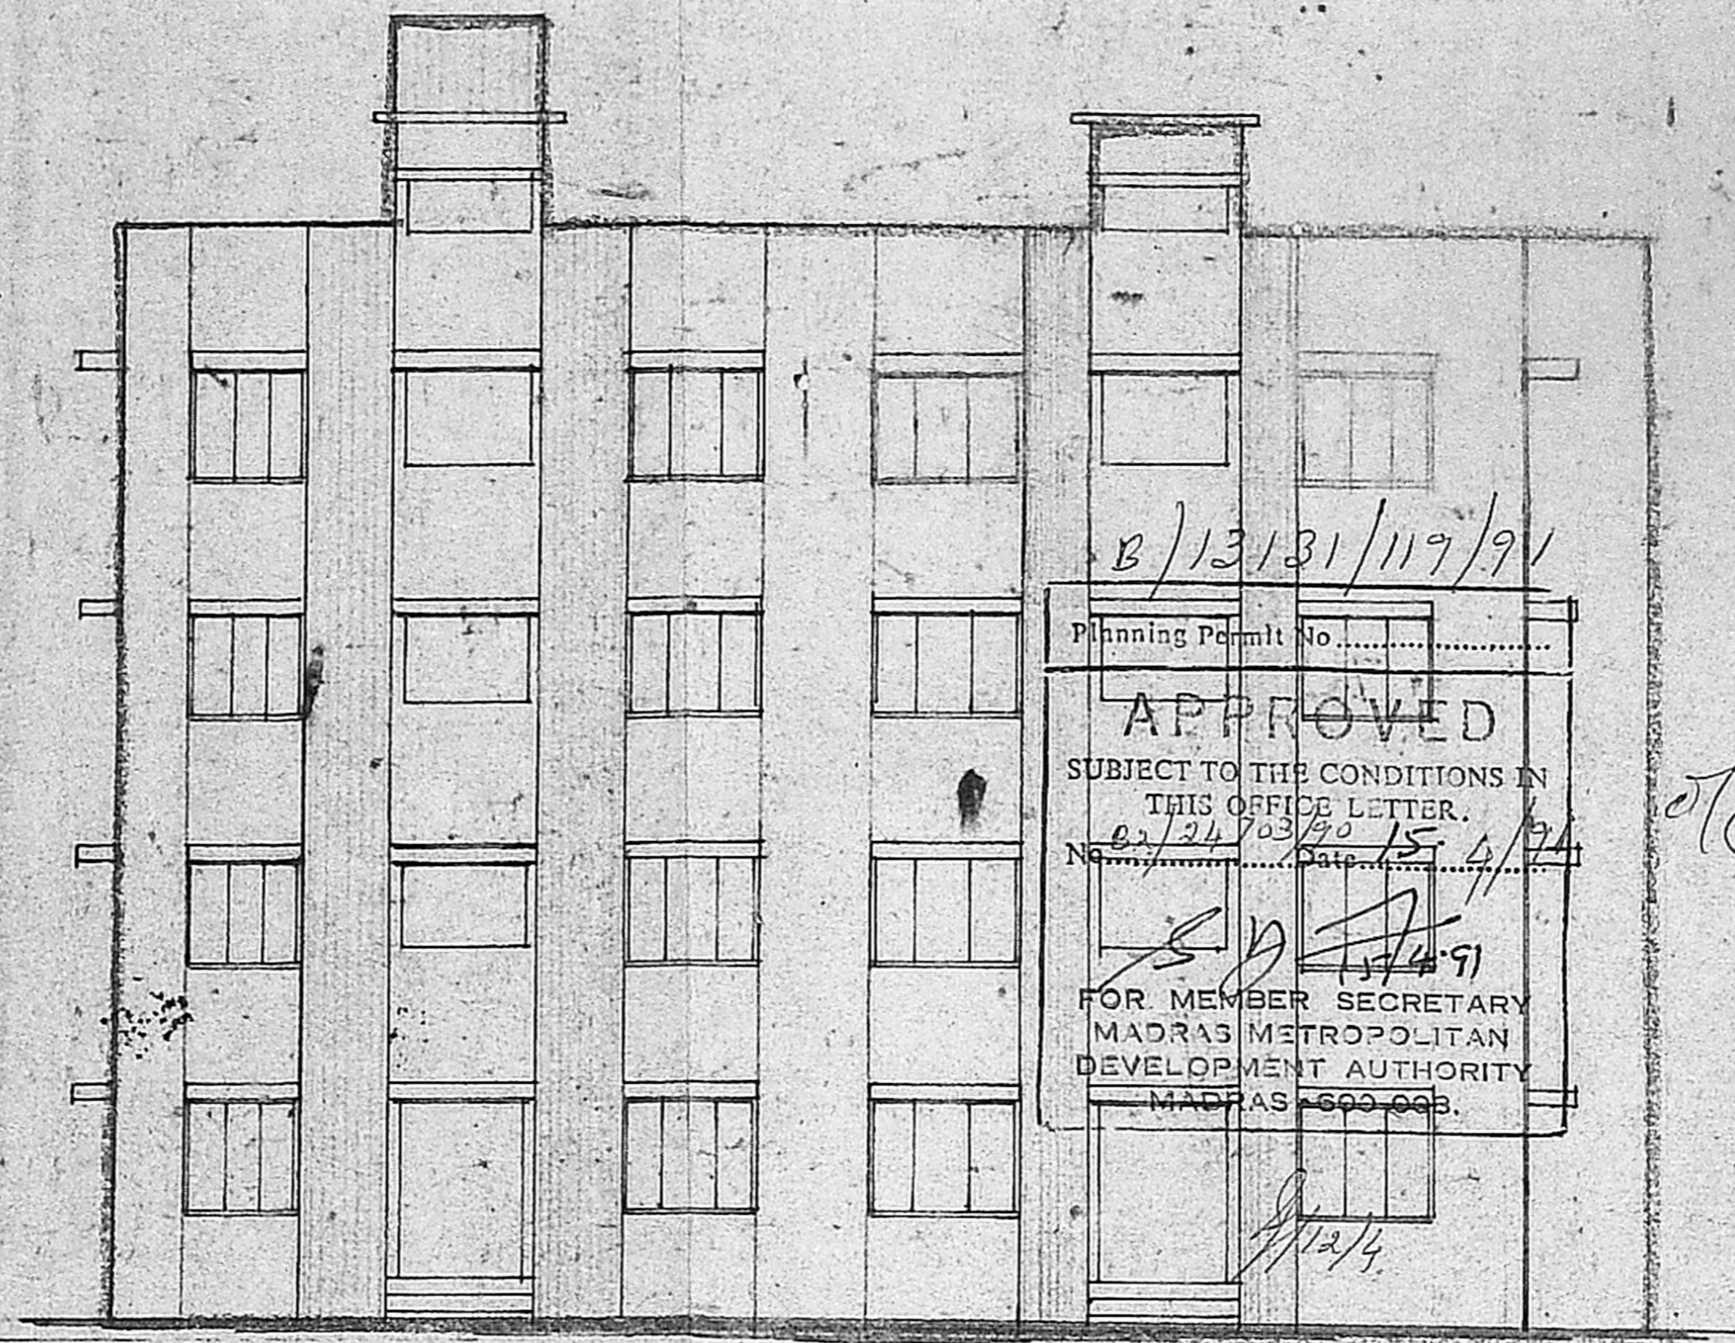 B/13131/119/91
Planning Permit No..............................
APPROVED
SUBJECT TO THE CONDITIONS IN
THIS OFFICE LETTER.
No B2/24703/90 Date 15.4/91
15/4.91
FOR MEMBER SECRETARY
MADRAS METROPOLITAN
DEVELOPMENT AUTHORITY
MADRAS - 600 008.
12/4